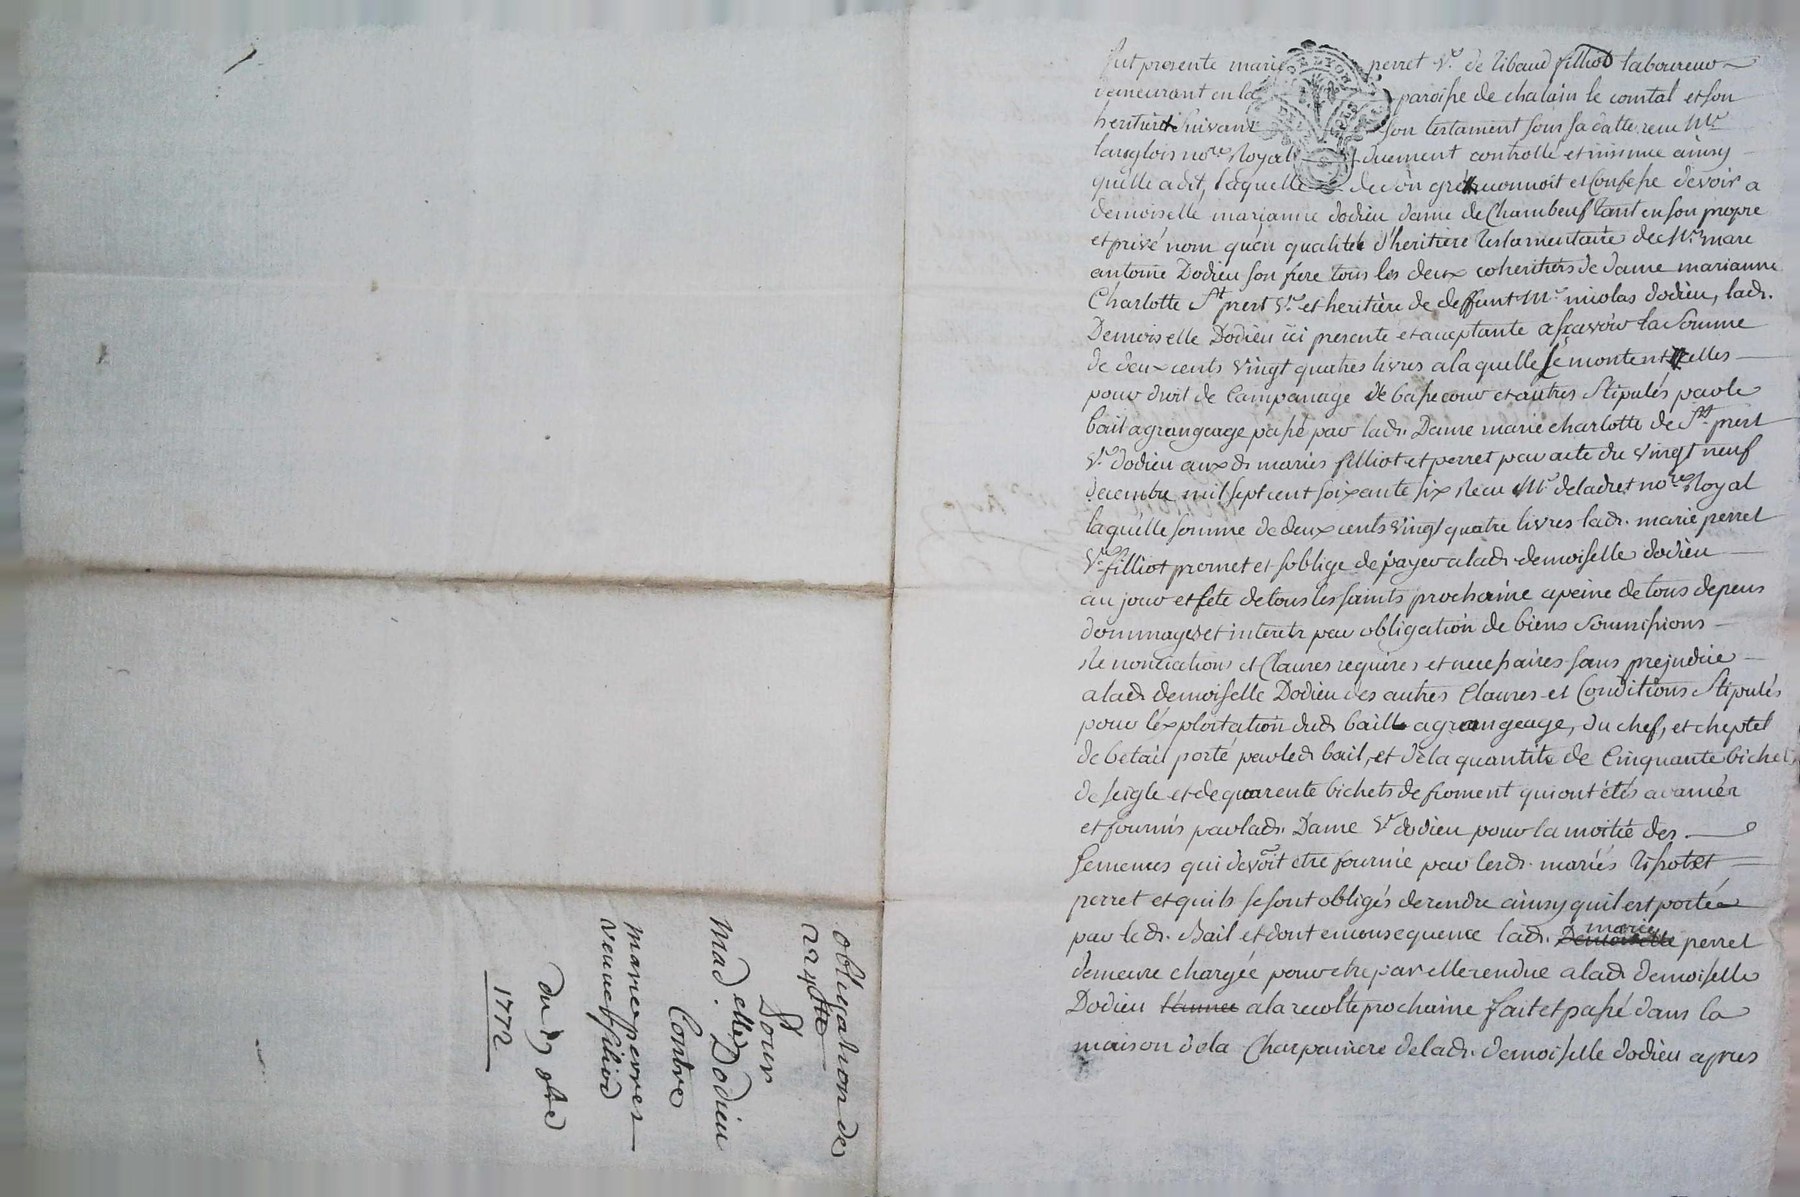 fut presente marie perret Ve. de tibaud filliod laboureur
demeurant en la paroisse de chalain le comtal et son
heritiere suivant son testament sous sa datte receu Me
langlois nore. Royal duement controllé et insinué ainsy
qu'elle a dit, laquelle de son gré reconnoit et Confesse devoir a
demoiselle marianne dodieu dame de Chambeuf tant en son propre
et privé nom qu'en qualité d'heritiere testamentaire de Mr. marc
antoine Dodieu son frere tous les deux coheritiers de dame marianne
Charlotte St. prest Ve. et heritiere de deffunt Mr. nicolas dodieu, lad.
Demoiselle Dodieu ici presente et acceptante a sçavoir la Somme
de deux cents vingt quatres livres a laquelle se montent celles
pour droit de Campanage de basse cour et autres Stipulés par le
bail a grangeage passé par lad. Dame marie charlotte de St. prest
Ve. dodieu aux d. mariés filliot et perret par acte du vingt neuf
decembre mil sept cent soixante six Receu Me deladret nore Royal
laquelle somme de deux cents vingt quatre livres lad. marie perret
Ve. filliot promet et s'oblige de payer a lad. demoiselle dodieu
au jour et fete de tous les saints prochaine a peine de tous depens
dommages et interets par obligation de biens Soumissions
Renonciations et Clauses requises et necessaires sans prejudice
a lad. demoiselle Dodieu des autres Clauses et Conditions Stipulés
pour l'exploitation dud. bail a grangeage, du chef, et cheptel
de betail porté par led. bail, et de la quantité de Cinquante bichets
de seigle et de quarente bichets de froment qui ont étés avancés
et fournis par lad. Dame Ve. dodieu pour la moitié des
semences qui devoit etre fournie par lesd. mariés et
perret et qu'ils se sont obligés de rendre ainsy qu'il est porté
par led. Bail et dont en consequence lad. Demoiselle marie perret
demeure chargée pour etre par elle rendue a lad. demoiselle
Dodieu l'année a la recolte prochaine fait et passé dans la
maison de la Charpiniere de lad. demoiselle dodieu apres
obligation de
224tt
Pour
Mad.elle Dodieu
Contre
marie perret
veuve filliod
du 8bre
1772